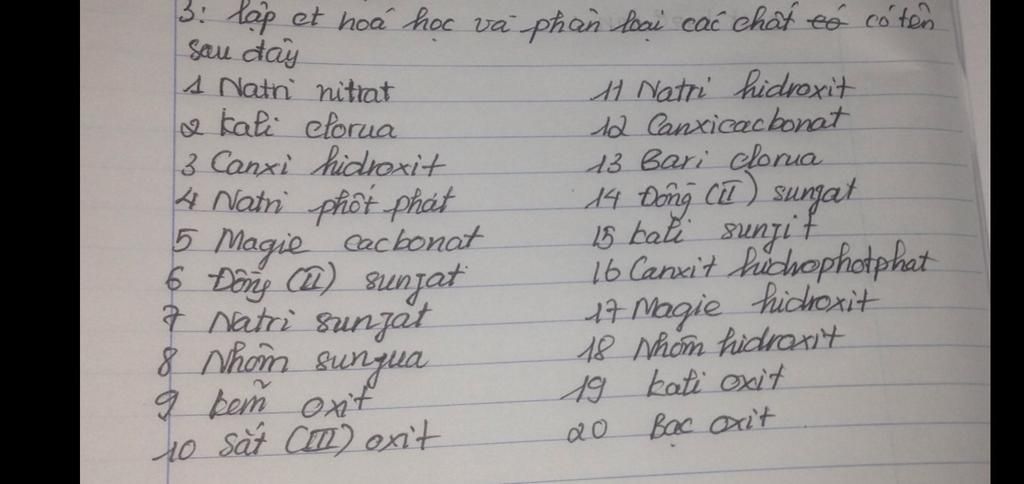 3: lập ct hoá học và phân loại các chất có có tên
sau đây
1 Natri nitrat
2 kali clorua
3 Canxi hidroxit
4 Natri phốt phát
5 Magie cacbonat
6 Đồng (II) sunfat
7 Natri sunfat
8 Nhôm sunfua
9 kẽm oxit
10 Sắt (III) oxit
11 Natri hidroxit
12 Canxicacbonat
13 Bari clorua
14 Đồng (II) sunfat
15 kali sunfit
16 Canxit hidrophotphat
17 Magie hidroxit
18 Nhôm hidroxit
19 kali oxit
20 Bạc oxit